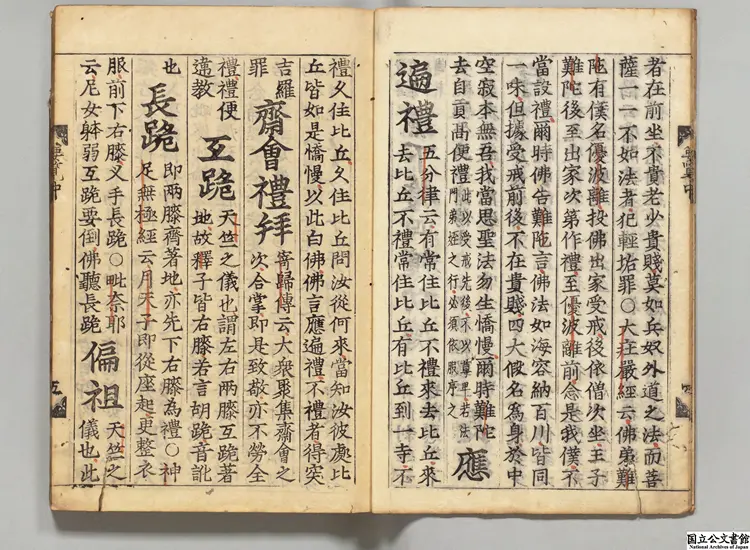 者在前坐不貴老少貴賤莫如兵奴外道之法而菩
薩一一不如法者犯輕垢罪○大莊嚴經云佛弟難
陁有僕名優波離投佛出家受戒後依僧次坐王子
難陁後至出家次第作禮至優波離前念是我僕不
當設禮爾時佛告難陁言佛法如海容納百川皆同
一味但據受戒前後不在貴賤四大假名為身於中
空寂本無吾我當思聖法勿生憍慢爾時難陁
去自貢高便禮
此以受戒先後不以尊卑若法
門弟姪之行必須依服序之
應
遍禮
五分律云有常住比丘不禮來去比丘來
去比丘不禮常住比丘有比丘到一寺不
禮久住比丘久住比丘問汝從何來當知汝彼處比
丘皆如是憍慢以此白佛佛言應遍禮不禮者得突
吉羅
罪
齋會禮拜
寄歸傳云大衆聚集齋會之
次合掌即是致敬亦不勞全
禮禮便
違教
互跪
天竺之儀也謂左右兩膝互跪著
地故釋子皆右膝若言胡跪音訛
也
長跪
即兩膝齊著地亦先下右膝為禮○神
足無極經云月天子即從座起更整衣
服前下右膝叉手長跪○毗奈耶
云尼女躰弱互跪要倒佛聽長跪
偏袒
天竺之
儀也此
國立公文書館
National Archives of Japan